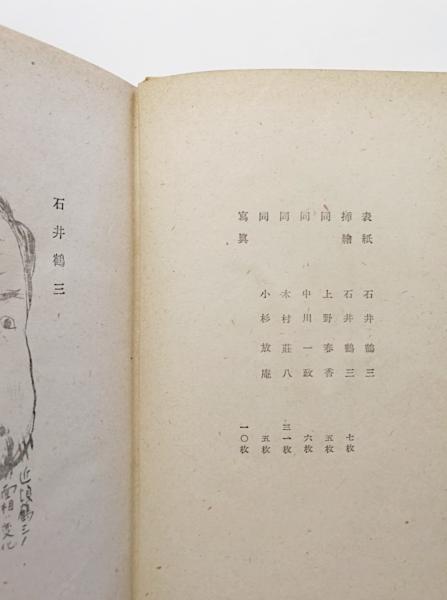 表紙 石井鶴三
挿繪 石井鶴三 七枚
同 上野春香 五枚
同 中川一政 六枚
同 木村莊八 三一枚
同 小杉放庵 五枚
寫眞 一〇枚
石井鶴三
近頃鶴三ノ
面相變化